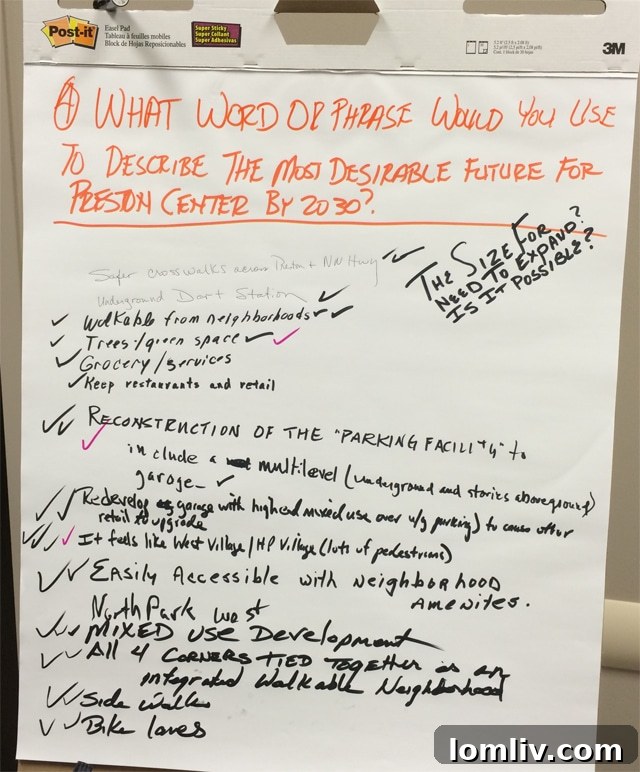 Post-it
Easel Pad
Tableau à feuilles mobiles
Block de Hojas Reposicionables
Super Sticky
Super Collant
Super Adhesivas
3M
A WHAT WORD OR PHRASE WOULD YOU USE
TO DESCRIBE THE MOST DESIRABLE FUTURE FOR
PRESTON CENTER BY 2030?
THE SIZE FOR
NEED TO EXPAND?
IS IT POSSIBLE?
Safer crosswalks across Preston + NW Hwy ✓✓
Underground Dart Station ✓
✓ Walkable from neighborhoods ✓✓
✓ Trees/green space ✓ ✓
✓ Grocery/services
✓ Keep restaurants and retail
✓✓ RECONSTRUCTION OF THE "PARKING FACILITY" to
✓ include a multilevel (underground and stories aboveground)
garage ✓
✓✓ Redevelop garage with highend mixed use over u/g parking) to cause other
retail to upgrade
✓✓✓ It feels like West Village/HP Village (lots of pedestrians)
✓✓ EASILY ACCESSIBLE WITH NEIGHBORHOOD
AMENITES.
NorthPark West
✓✓ MIXED USE Development
✓✓ All 4 CORNERS TIED TOGETHER as an
integrated Walkable Neighborhood
✓✓ Side Walks
✓✓ Bike lanes
lomliv.com